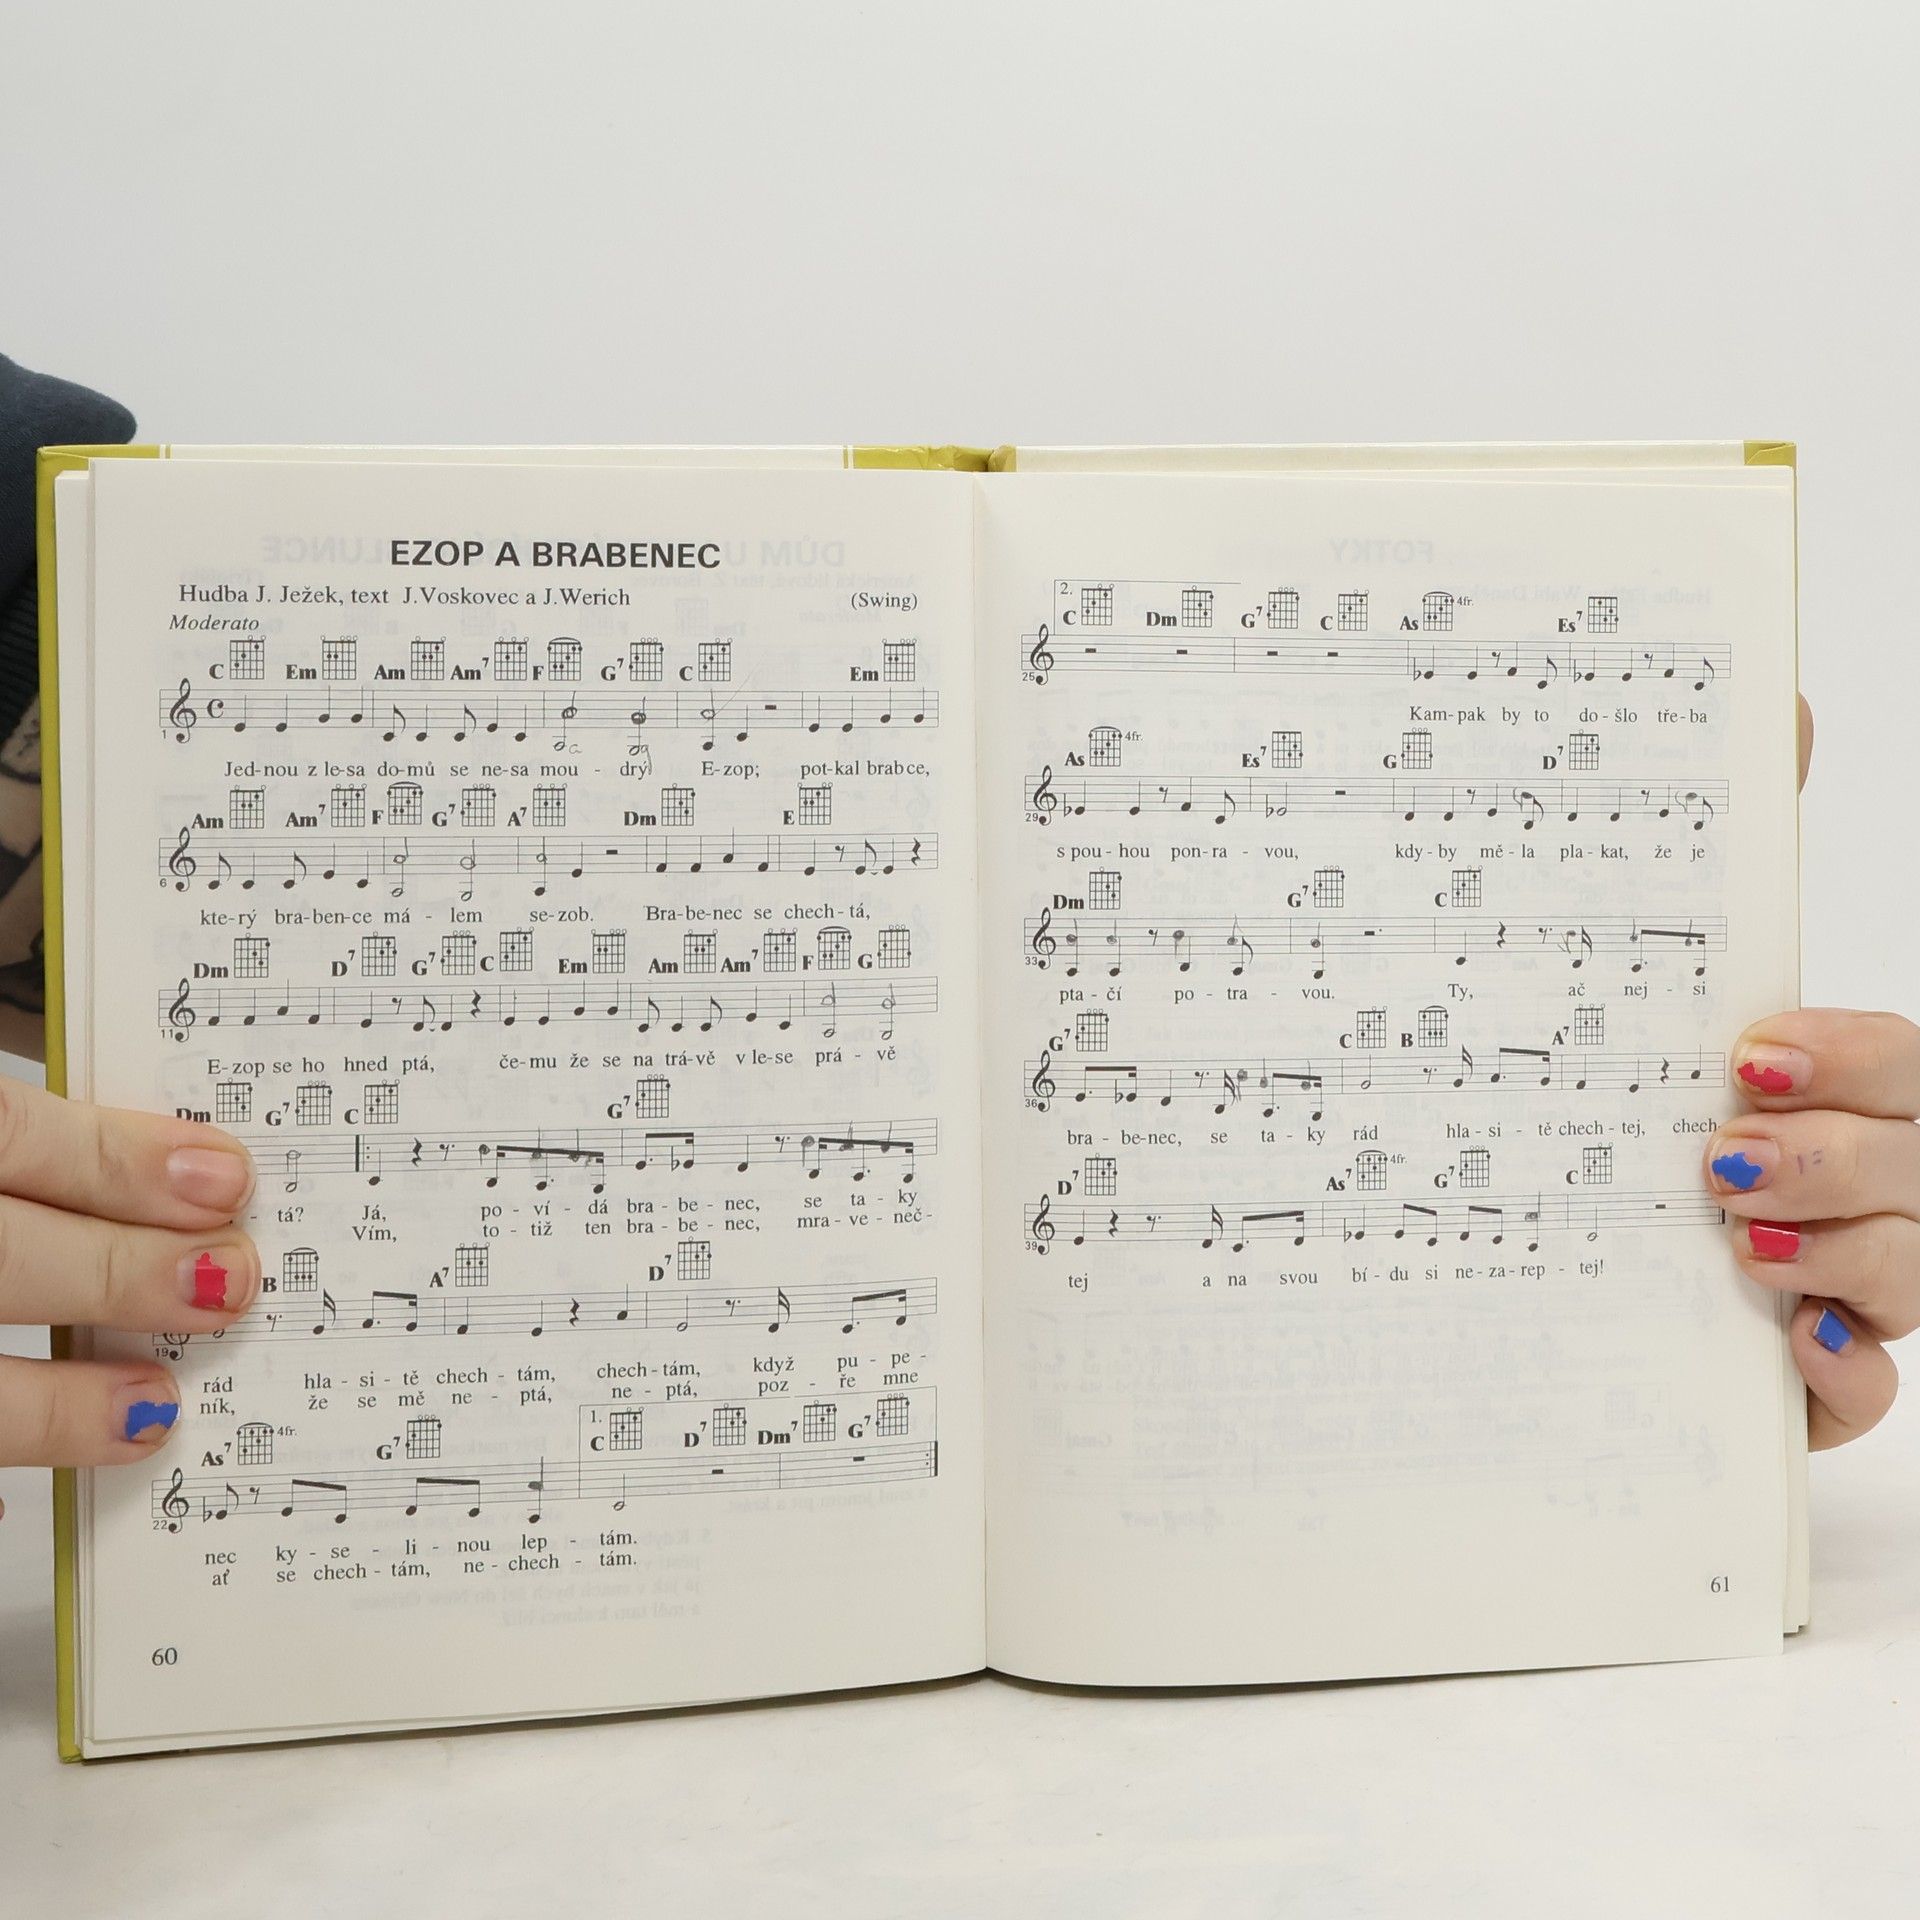 EZOP A BRABENEC
Hudba J. Ježek, text J.Voskovec a J.Werich
(Swing)
Moderato
C Em Am Am7 F G7 C Em
1
Jed-nou z le-sa do-mů se ne-sa mou - drý E-zop; pot-kal brabce,
Am Am7 F G7 A7 Dm E
6
kte-rý bra-ben-ce má - lem se-zob. Bra-be-nec se chech-tá,
Dm D7 G7 C Em Am Am7 F G
11
E-zop se ho hned ptá, če-mu že se na trá-vě v le-se prá - vě
Dm G7 C G7
- tá? Já, po - ví - dá bra - be - nec, se ta - ky
Vím, to - tiž ten bra - be - nec, mra - ve - neč -
B A7 D7
19
rád hla - si - tě chech - tám, chech-tám, když pu - pe -
ník, že se mě ne - ptá, ne - ptá, poz - ře mne
As7 4fr. G7 1. C D7 Dm7 G7
22
nec ky - se - li - nou lep - tám.
ať se chech - tám, ne - chech - tám.
60
2. C Dm G7 C As 4fr. Es7
25
Kam-pak by to do - šlo tře-ba
As 4fr. Es7 G D7
29
s pou - hou pon-ra - vou, kdy - by mě - la pla - kat, že je
Dm G7 C
33
pta - čí po - tra - vou. Ty, ač nej - si
G7 C B A7
36
bra - be-nec, se ta - ky rád hla - si - tě chech - tej, chech-
D7 As7 4fr. G7 C
39
tej a na svou bí - du si ne - za - rep - tej!
61